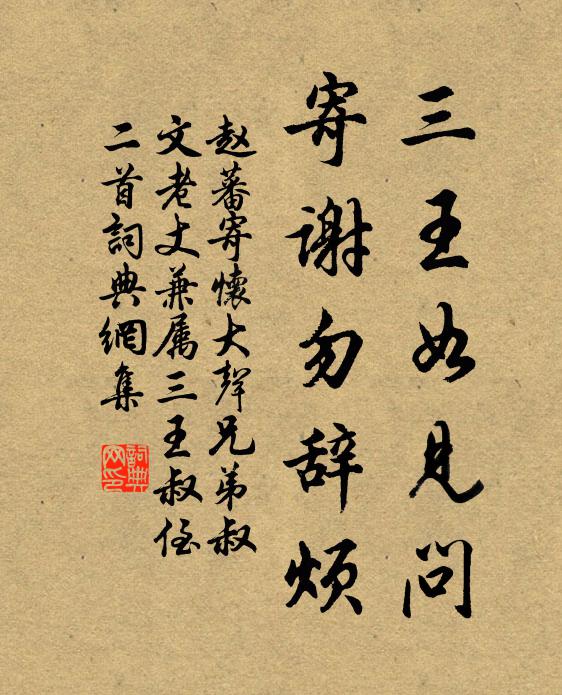 三王如見問
寄謝勿辞煩
赵蕃寄懷大聲兄弟叔
文老丈兼属三王叔侄
二首詞典網集
詞典网印